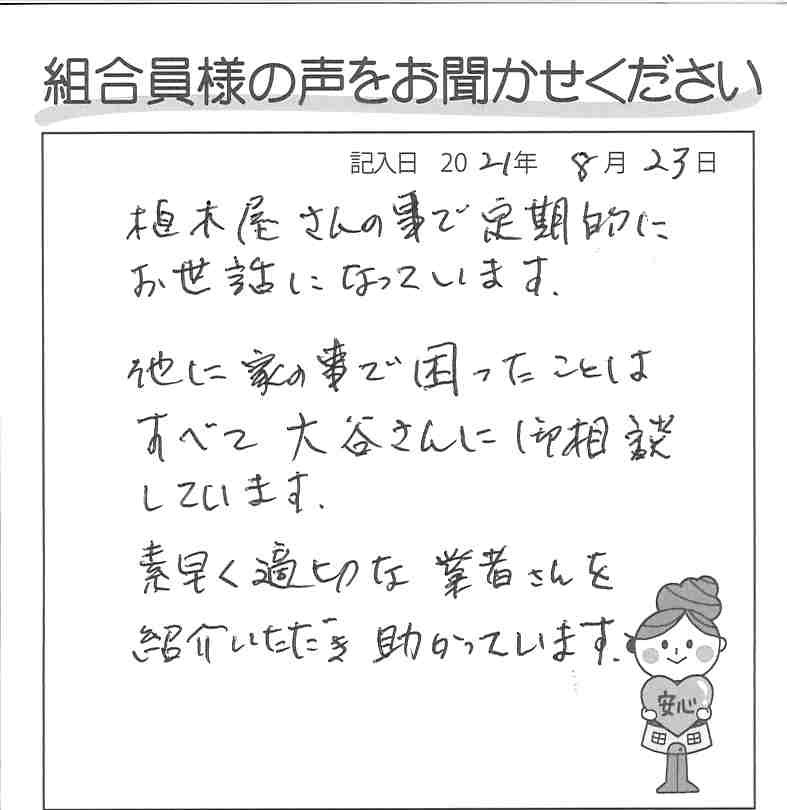 組合員様の声をお聞かせください
記入日 2021年 8月 23日
植木屋さんの事で定期的に
お世話になっています.
他に家の事で困ったことは
すべて大谷さんに御相談
しています.
素早く適切な業者さんを
紹介いただき助かっています.
安心